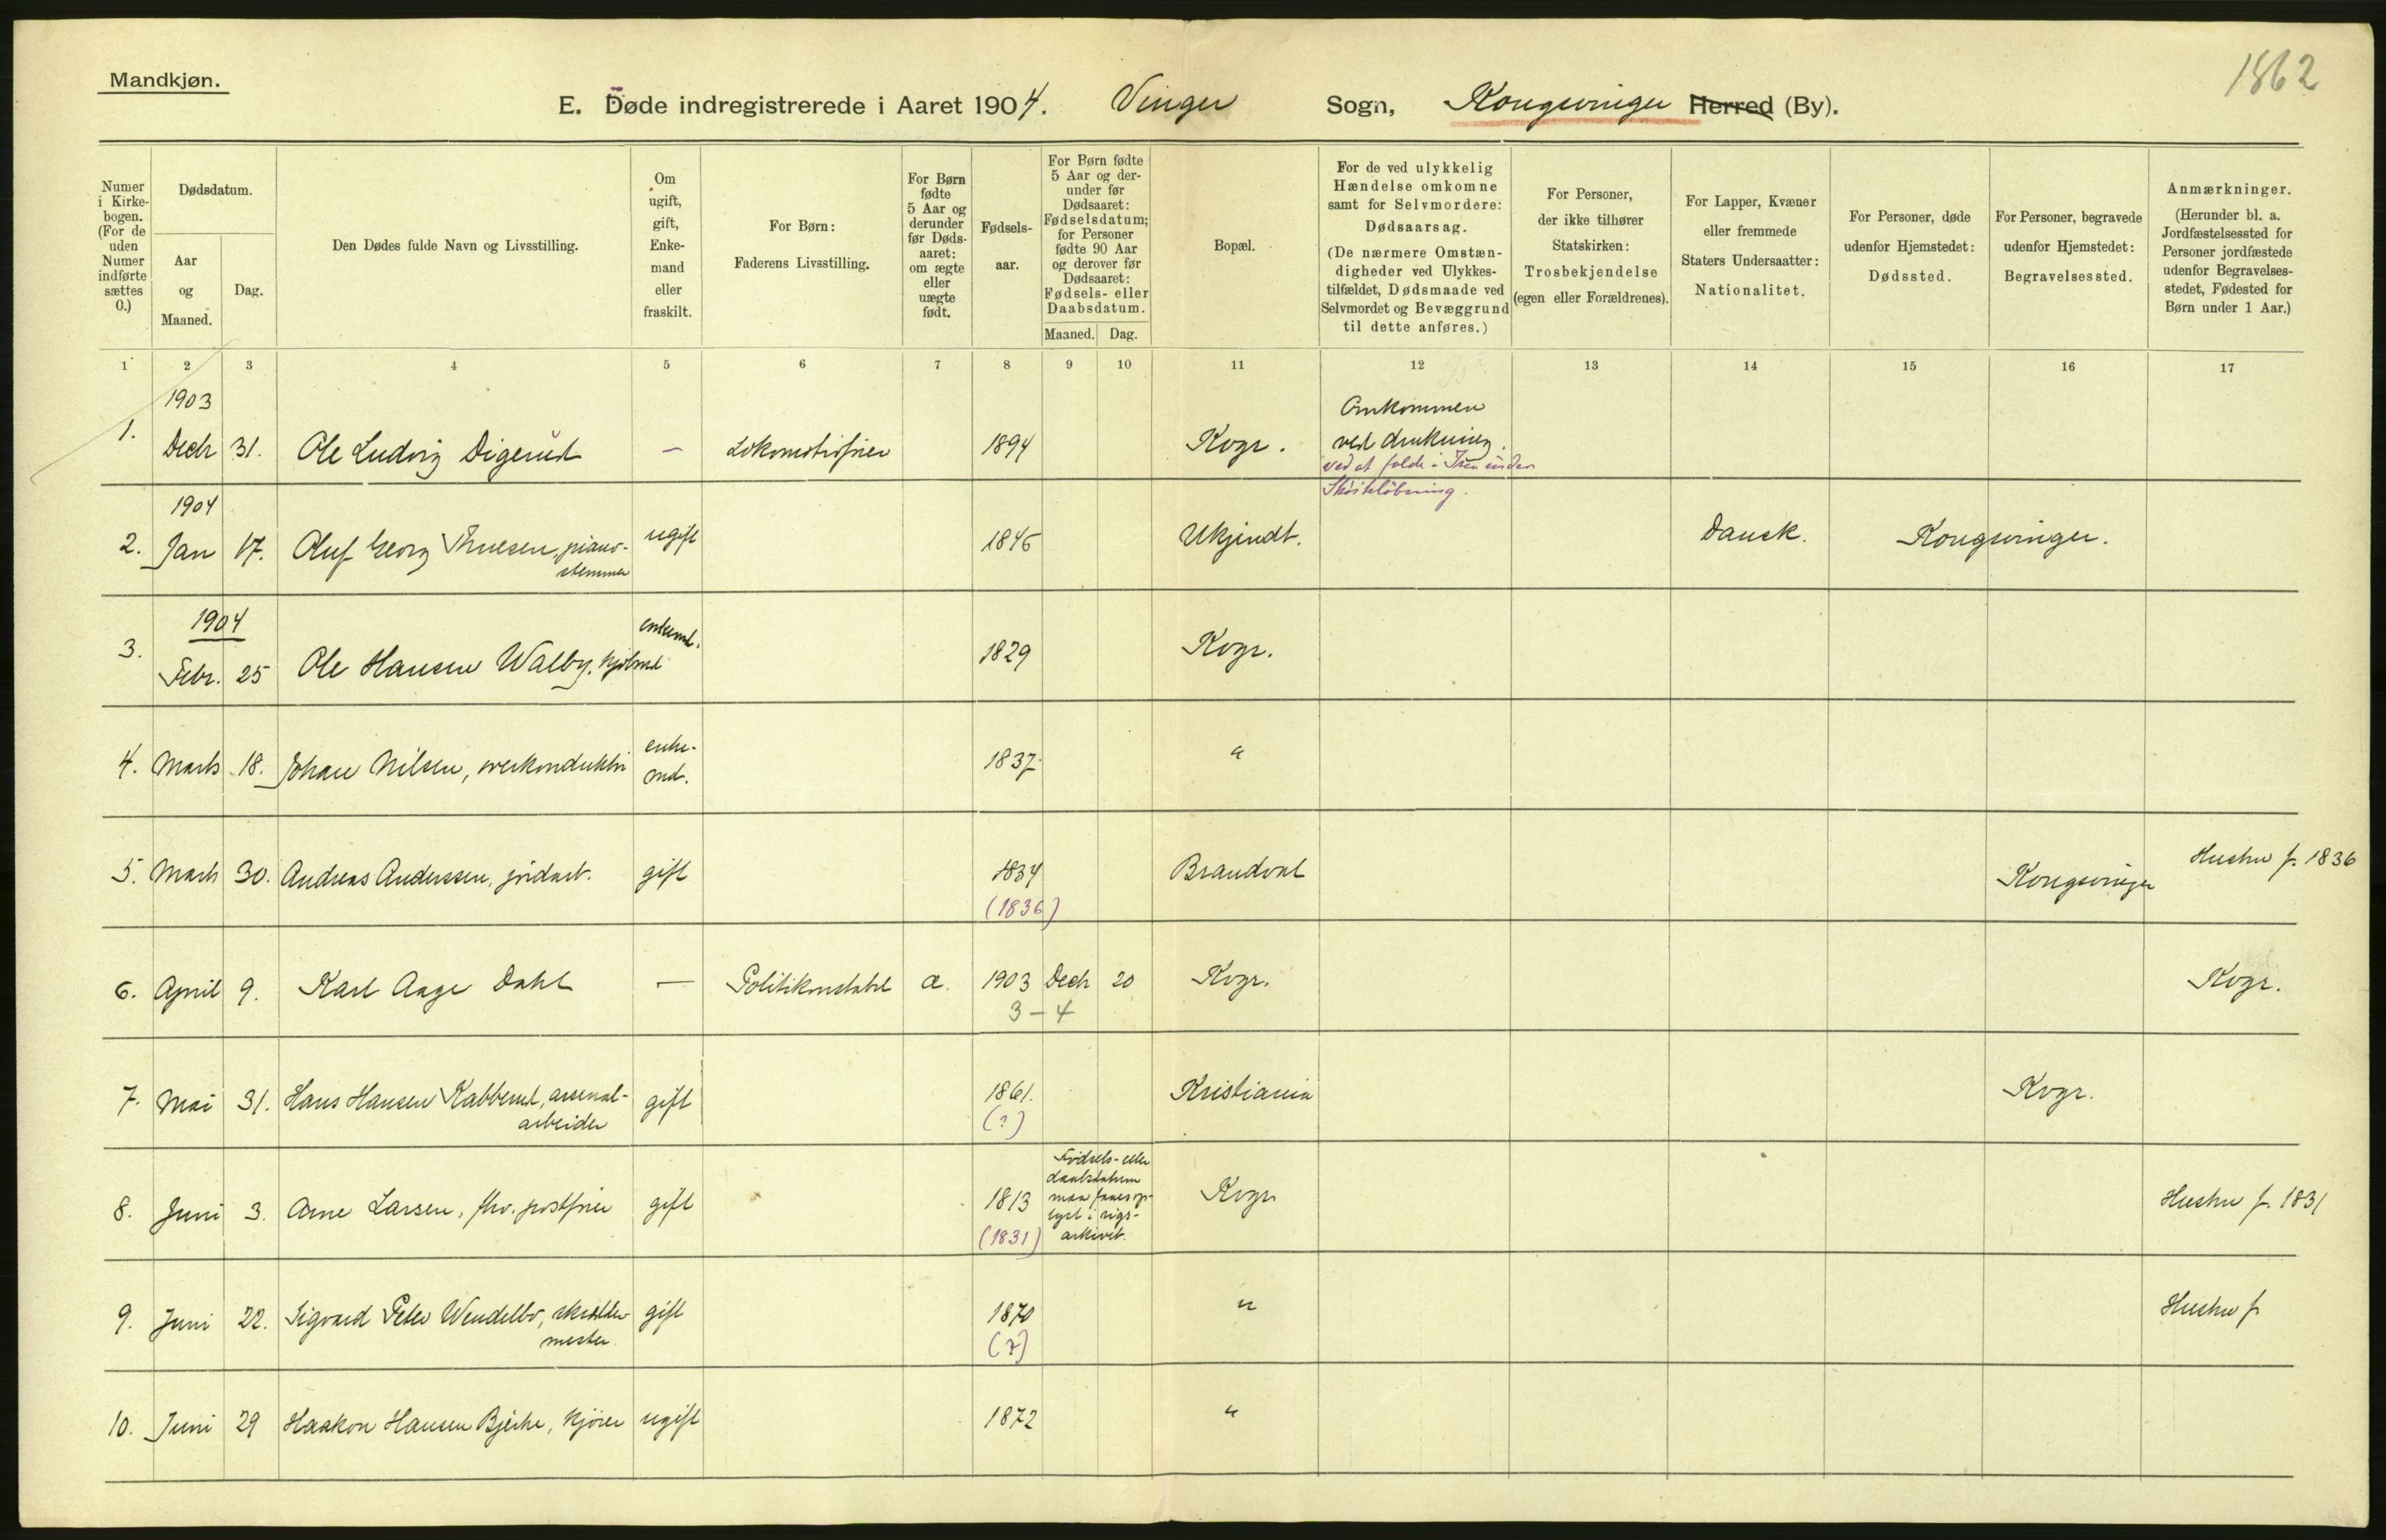 Mandkjøn.
1862
E. Døde indregistrerede i Aaret 1904. Vinger Sogn, Kongsvinger Herred (By).
Numer i Kirkebogen. (For de uden Numer indførte sættes 0.)
Dødsdatum.
Aar og Maaned.
Dag.
Den Dødes fulde Navn og Livsstilling.
Om ugift, gift, Enkemand eller fraskilt.
For Børn: Faderens Livsstilling.
For Børn fødte 5 Aar og derunder før Dødsaaret: om ægte eller uægte født.
Fødselsaar.
For Børn fødte 5 Aar og derunder før Dødsaaret: Fødselsdatum; for Personer fødte 90 Aar og derover før Dødsaaret: Fødsels- eller Daabsdatum.
Maaned. Dag.
Bopæl.
For de ved ulykkelig Hændelse omkomne samt for Selvmordere: Dødsaarsag. (De nærmere Omstændigheder ved Ulykkestilfældet, Dødsmaade ved Selvmordet og Bevæggrund til dette anføres.)
For Personer, der ikke tilhører Statskirken: Trosbekjendelse (egen eller Forældrenes).
For Lapper, Kvæner eller fremmede Staters Undersaatter: Nationalitet.
For Personer, døde udenfor Hjemstedet: Dødssted.
For Personer, begravede udenfor Hjemstedet: Begravelsessted.
Anmærkninger. (Herunder bl. a. Jordfæstelsessted for Personer jordfæstede udenfor Begravelsesstedet, Fødested for Børn under 1 Aar.)
1 2 3 4 5 6 7 8 9 10 11 12 13 14 15 16 17
1903
1. Decbr 31. Ole Ludvig Digerud — Lokomotivfrer 1894 Kvgr. Omkommen
ved drukning.
ved at falde i Isen under
Skøiteløbning.
1904
2. Jan 17. Oluf Georg Thuesen, piano-
stemmer
ugift 1846 Ukjendt. Dansk. Kongsvinger.
1904
3. Febr. 25 Ole Hansen Walby, kjøbmd enkemd. 1829 Kvgr.
4. Marts 18. Johan Nilsen, overkonduktør enke-
md.
1837 "
5. Marts 30. Andreas Anderssen, jordarb. gift 1834 Brandval Kongsvinger Hustru f. 1836
(1836)
6. April 9. Karl Aage Dahl — Politikonstabel æ. 1903 Decbr 20 Kvgr. Kvgr.
3 - 4
7. Mai 31. Hans Hansen Kabberud, arsenal-
arbeider
gift 1861. Kristiania Kvgr.
(?)
8. Juni 3. Arne Larsen, fhv. postfører gift 1813 Fødsels- eller
daabsdatum
maa faaes op-
lyst i rigs-
arkivet.
Kvgr Hustru f. 1831
(1831)
9. Juni 22. Sigvard Peter Wendelbo, skrædder
mester
gift 1870 " Hustru f
(?)
10. Juni 29 Haakon Hansen Bjerke, kjører ugift 1872 "